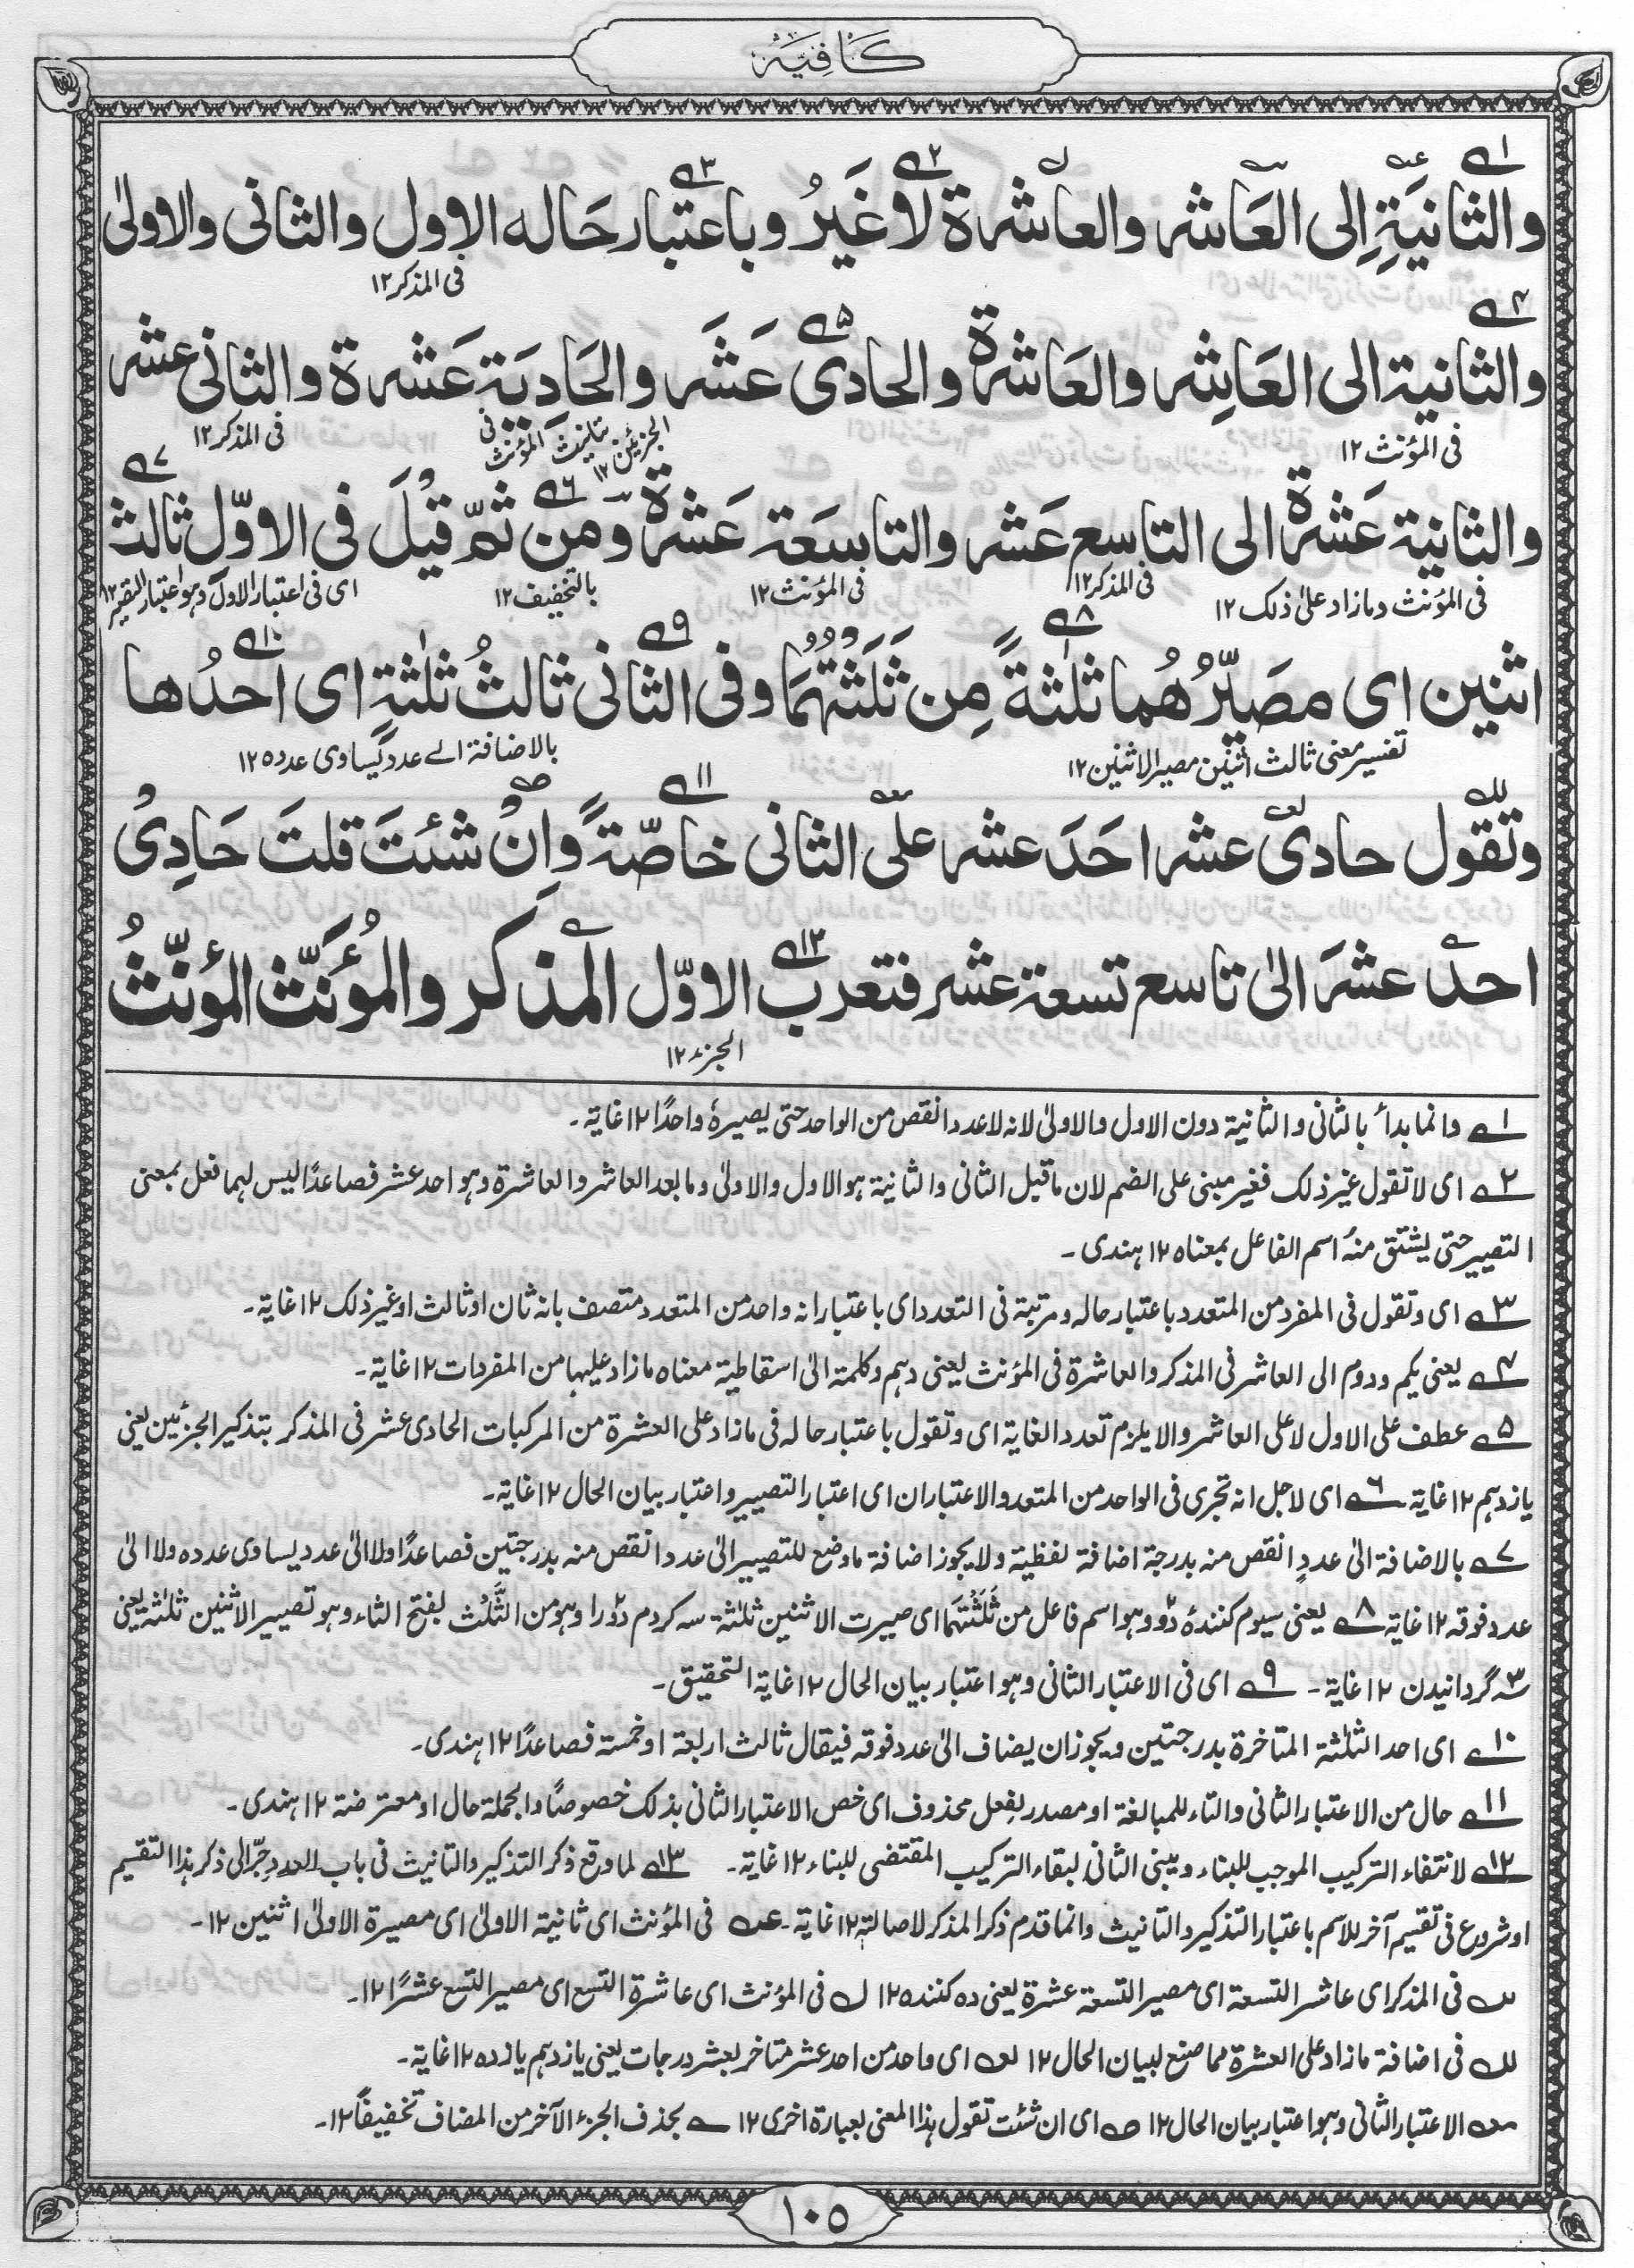 كَافِيَہ
والثانيَةِ اِلى العَاشر والعاشرة لا غَيرُ وباعتبار حَاله الاول والثانى والاولىٰ
فى المذكر ١٢
والثانية الى العَاشِر والعَاشرة والحادى عَشَر والحَادِيَة عَشرة والثانى عشر
فى المؤنث ١٢
الجزئين ١٢
بتانيث المؤنث فى
فى المذكر ١٢
والثانية عَشرة الى التاسع عَشر والتاسعَة عَشرة ومن ثمّ قيْلَ فى الاوّل ثالث
فى المؤنث ومازاد علىٰ ذلك ١٢
فى المذكر ١٢
فى المؤنث ١٢
بالتخفيف ١٢
اى فى اعتبار الاول وهو اعتبار التصيير ١٢
اثنين اى مصَيّرُهُما ثلٰثةً مِن ثَلَثْتُهُمَا وفى الثانى ثالثُ ثلٰثةِ اى احدُها
تفسير معنى ثالث اثنين مصير الاثنين ١٢
بالاضافة الے عدد يساوى عدده ١٢
وتقول حادى عشر احَدَ عشر على الثانى خاصّةً وَاِنْ شئتَ قلتَ حَادِىْ
احد عشرَ الىٰ تاسع تسعة عشر فتعرب الاوّل المذكر والمُؤَنّث المؤنّثُ
الجزء ١٢
١ے وانما بدأ بالثانى والثانية دون الاول والاولىٰ لانه لاعدد انقص من الواحد حتى يصيره واحدًا ١٢ غاية۔
٢ے اى لا تقول غير ذلك فغير مبنى على الضم لان ماقبل الثانى والثانية هو الاول والاولىٰ وما بعد العاشر والعاشرة وهو احد عشر فصاعدًا ليس لهما فعل بمعنى
التصيير حتى يشتق منه اسم الفاعل بمعناه ١٢ هندى۔
٣ے اى وتقول فى المفرد من المتعدد باعتبار حاله ومرتبة فى التعدد اى باعتبار انه واحد من المتعدد متصف بانه ثان او ثالث او غير ذلك ١٢ غاية۔
٤ے يعنى يكم ودوم الى العاشر فى المذكر والعاشرة فى المؤنث يعنى دهم وكلمة الىٰ اسقاطية معناه مازاد عليها من المفردات ١٢ غاية۔
٥ے عطف على الاول لا على العاشر والا يلزم تعدد الغاية اى وتقول باعتبار حاله فى مازاد على العشرة من المركبات الحادى عشر فى المذكر بتذكير الجزئين يعنى
يازدهم ١٢ غاية۔ ٦ے اى لاجل انه تجرى فى الواحد من المتعدد الاعتباران اى اعتبار التصيير واعتبار بيان الحال ١٢ غاية۔
٧ے بالاضافة الىٰ عددٍ انقص منه بدرجة اضافة لفظية ولا يجوز اضافة ماوضع للتصيير الىٰ عدد انقص منه بدرجتين فصاعدًا ولا الىٰ عدد يساوى عدده ولا الىٰ
عدد فوقه ١٢ غاية ٨ے يعنى سيوم كنندۂ دو وهو اسم فاعل من ثَلَثْتُهُمَا اى صيرت الاثنين ثلٰثة سه كردم دو را وهو من الثَّلْث بفتح الثاء وهو تصيير الاثنين ثلٰثة يعنى
سه گردانيدن ١٢ غاية۔ ٩ے اى فى الاعتبار الثانى وهو اعتبار بيان الحال ١٢ غاية التحقيق۔
١٠ے اى احد الثلٰثة المتاخرة بدرجتين ويجوز ان يضاف الىٰ عدد فوقه فيقال ثالث اربعة او خمسة فصاعدًا ١٢ هندى۔
١١ے حال من الاعتبار الثانى والتاء للمبالغة او مصدر لفعل محذوف اى خص الاعتبار الثانى بذلك خصوصًا والجملة حال او معترضة ١٢ هندى۔
١٢ے لانتفاء التركيب الموجب للبناء ويبنى الثانى لبقاء التركيب المقتضى للبناء ١٢ غاية۔ ١٣ے لما وقع ذكر التذكير والتانيث فى باب العدد جرّ الى ذكر هذا التقسيم
او شروع فى تقسيم آخر للاسم باعتبار التذكير والتانيث وانما قدم ذكر المذكر لاصالته ١٢ غاية۔ عہ فى المؤنث اى ثانية الاولىٰ اى مصيرة الاولىٰ اثنين ١٢۔
فى المذكر اى عاشر التسعة اى مصير التسعة عشرة يعنى ده كننده ١٢ ل فى المؤنث اى عاشرة التسع اى مصير التسع عشرًا ١٢۔
للہ فى اضافة مازاد على العشرة مما صنع لبيان الحال ١٢ لعہ اى واحد من احد عشر متاخر بعشر درجات يعنى يازدهم يازده ١٢ غاية۔
الاعتبار الثانى وهو اعتبار بيان الحال ١٢ صہ اى ان شئت تقول هذا المعنى بعبارة اخرىٰ ١٢ ے بحذف الجزء الآخر من المضاف تخفيفًا ١٢۔
١٠٥